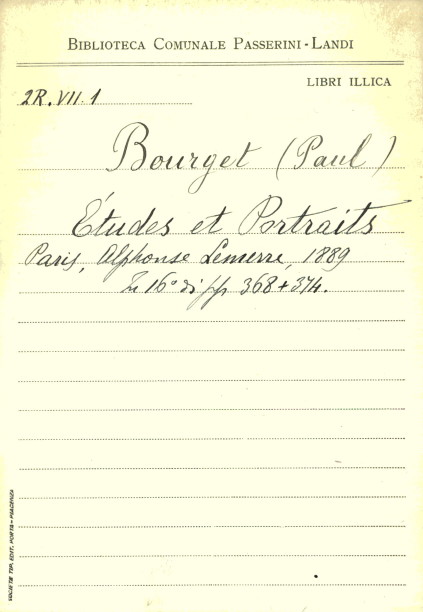 BIBLIOTECA COMUNALE PASSERINI - LANDI
LIBRI ILLICA
2R. VII. 1
Bourget (Paul)
Études et Portraits
Paris, Alphonse Lemerre, 1889
In 16° di pp 368 + 374.
SOCIETÀ TIP. EDIT. PORTA - PIACENZA